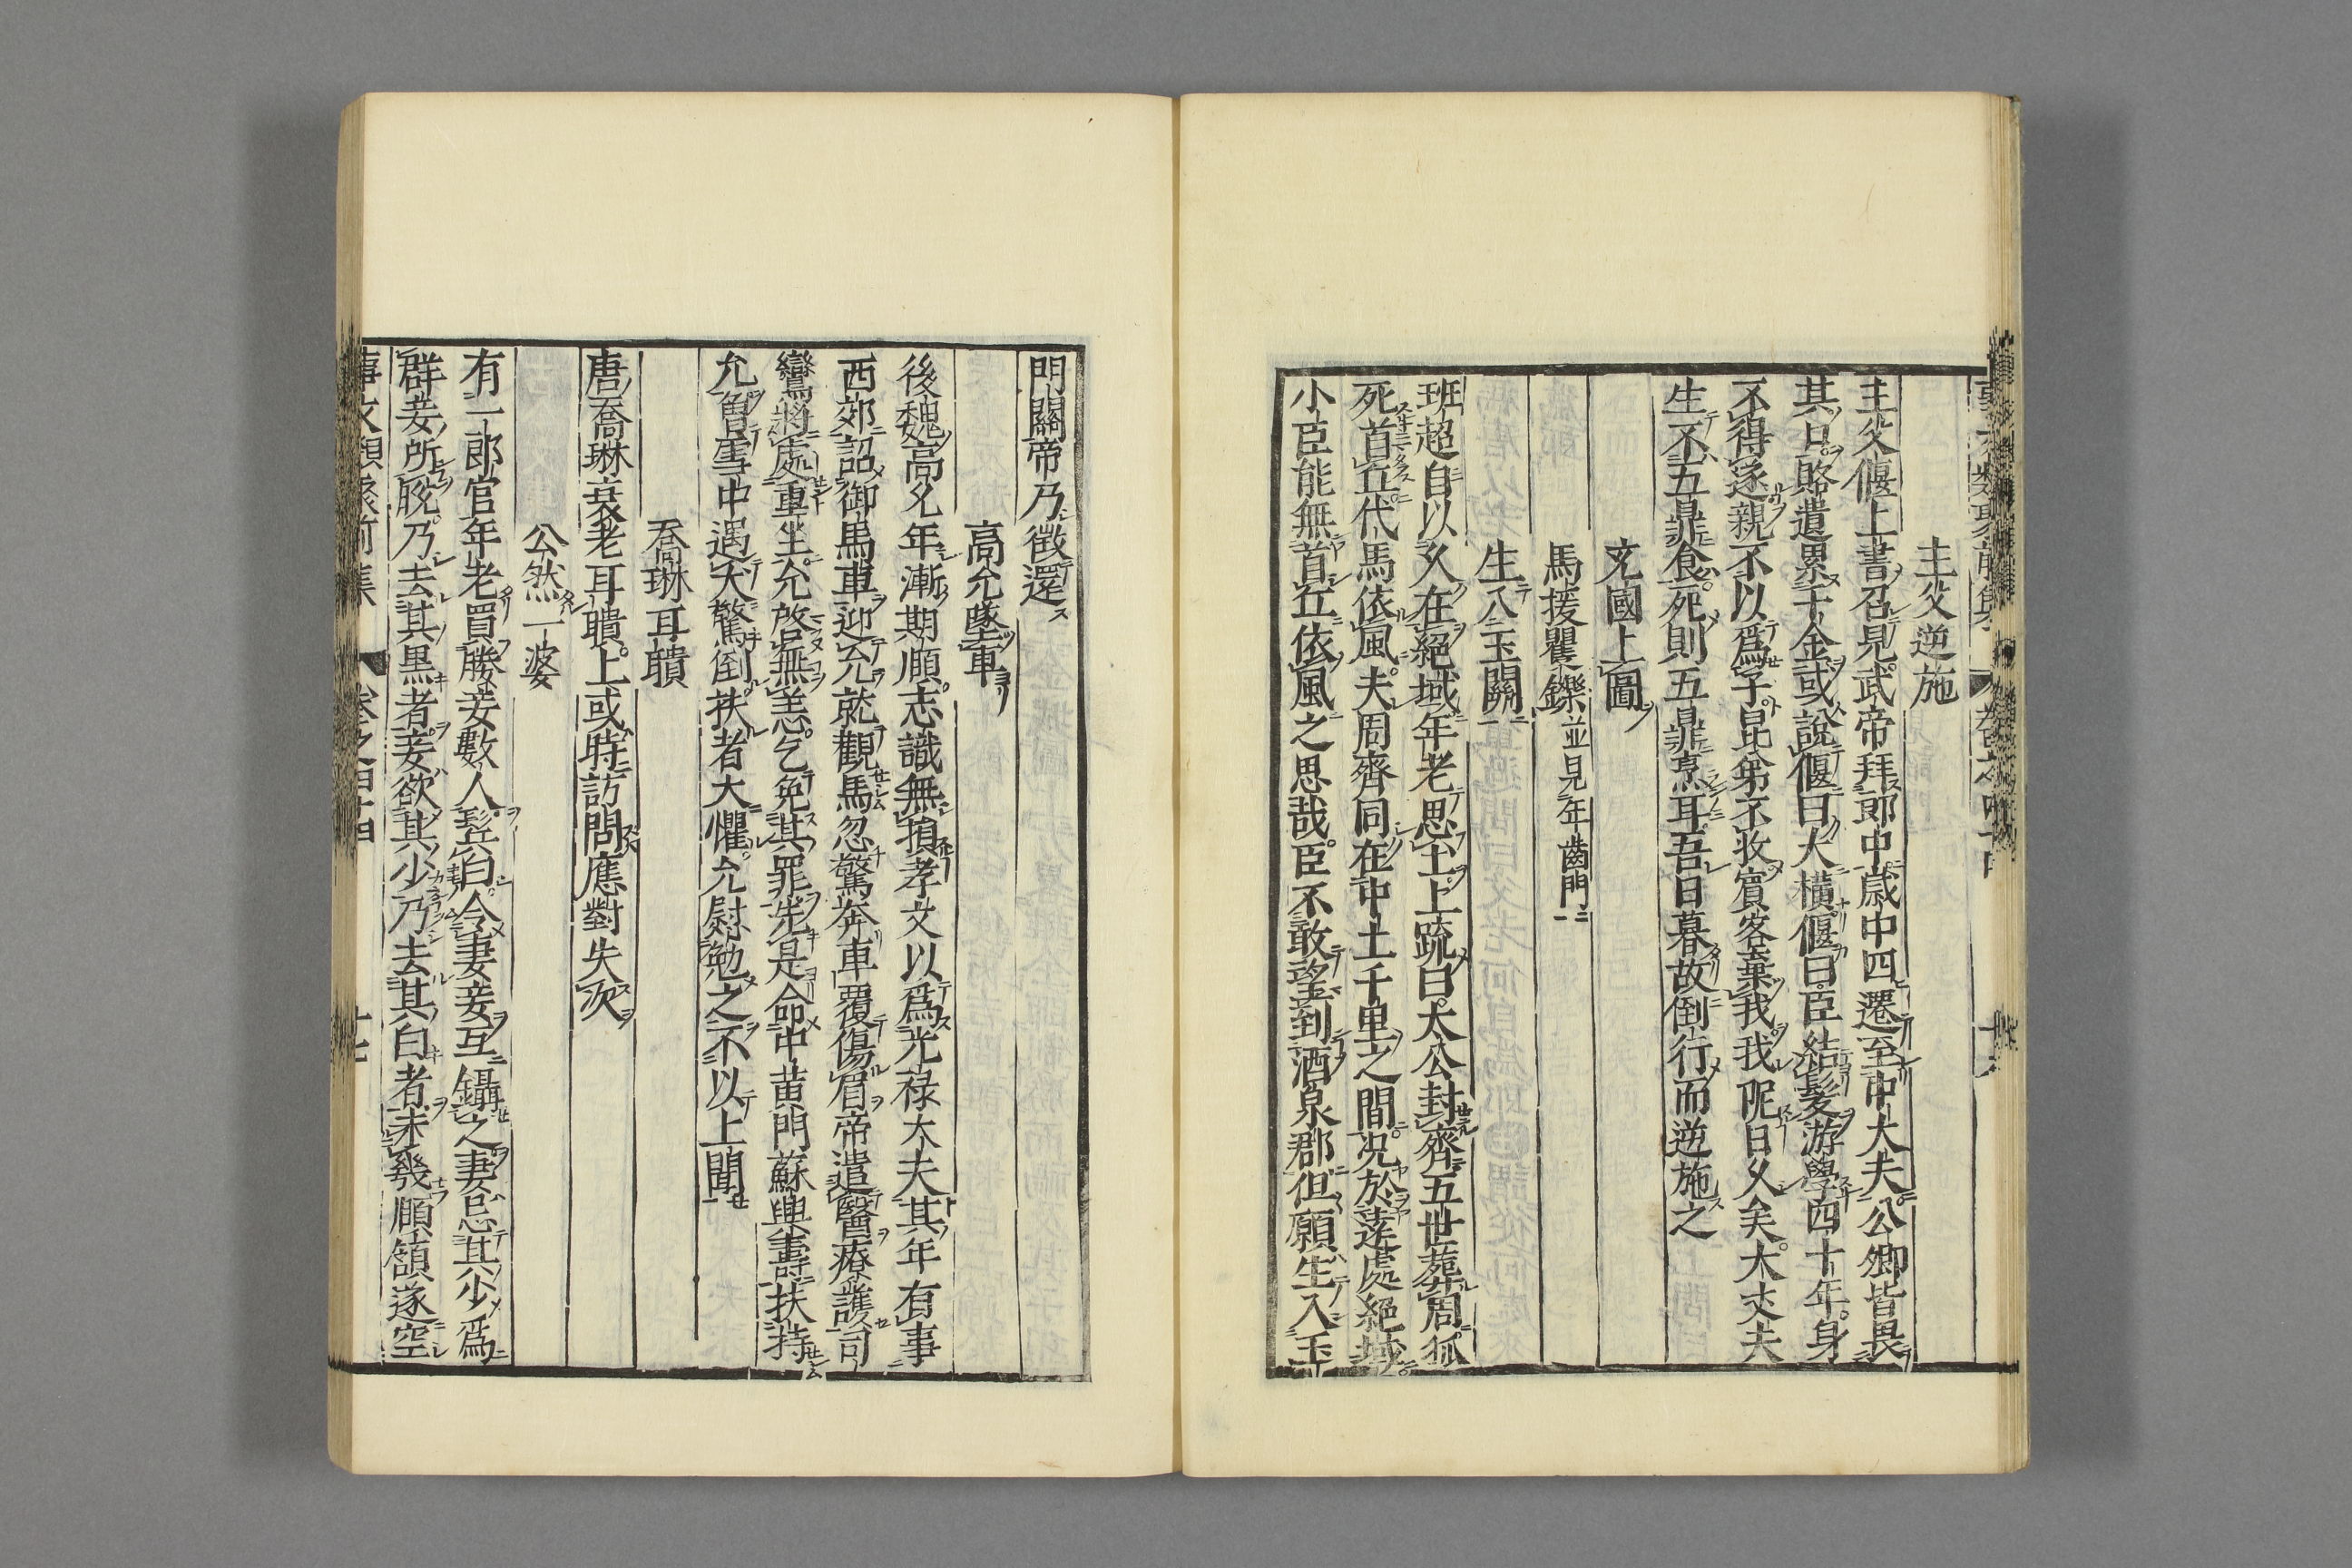 主父逆施
主父偃上書召見武帝拜郎中歲中四遷至中大夫公卿皆畏
其口賂遺累千金或說偃曰大橫偃曰臣結髮游學四十年身
不得遂親不以爲子昆弟不收賓客棄我我阨日久矣大丈夫
生不五鼎食死則五鼎烹耳吾日暮故倒行而逆施之
充國上圖
馬援矍鑠並見年齒門
生入玉關
班超自以久在絕域年老思土上疏曰太公封齊五世葬周狐
死首丘代馬依風夫周齊同在中土千里之間况於遠處絕域
小臣能無首丘依風之思哉臣不敢望到酒泉郡但願生入玉
門關帝乃徵還
高允墜車
後魏高允年漸期頤志識無損孝文以爲光祿大夫其年有事
西郊詔御馬車迎允就觀馬忽驚奔車覆傷眉帝遣醫療護司
鸞將處重坐允啓無恙乞免其罪先是命中黄門蘇興壽扶持
允曾雪中遇犬驚倒扶者大懼允慰勉之不以上聞
喬琳耳聵
唐喬琳衰老耳聵上或時訪問應對失次
公然一婆
有一郎官年老買媵妾數人鬂白令妻妾互鑷之妻忌其少爲
群妾所脫乃去其黒者妾欲其少乃去其白者未幾頤頷遂空